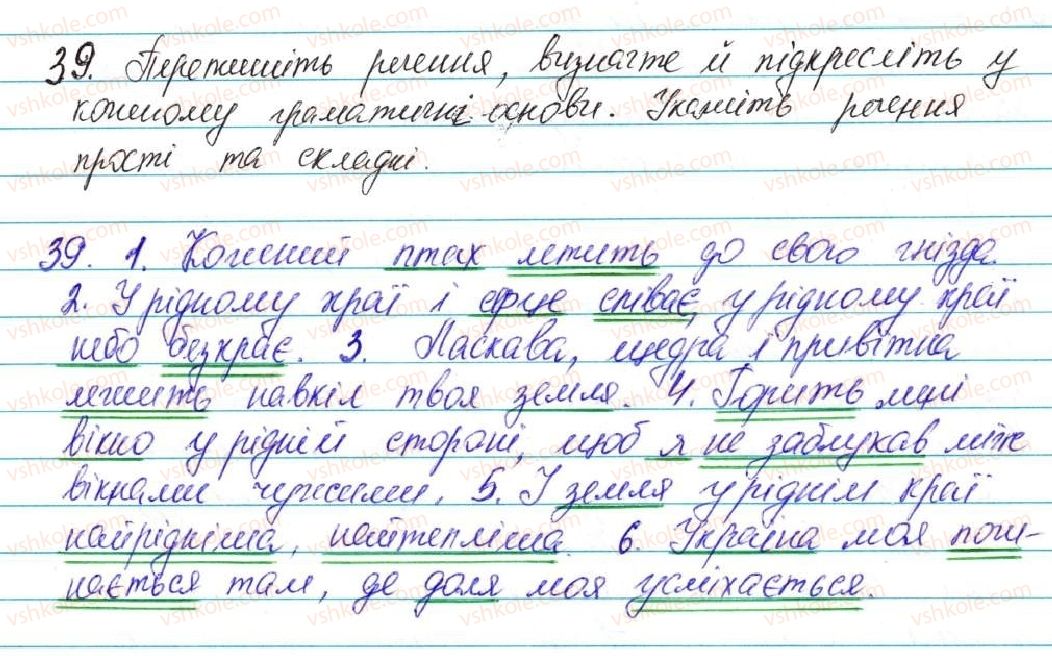 39. Перепишіть речення, визначте й підкресліть у
кожному граматичні основи. Укажіть речення
прості та складні.
39. 1. Кожний птах летить до свого гнізда.
2. У рідному краї і серце співає, у рідному краї
небо безкрає. 3. Ласкава, щедра і привітна
лежить навкіл твоя земля. 4. Горить мені
вікно у рідній стороні, щоб я не заблукав між
вікнами чужими. 5. І земля у ріднім краї
найрідніша, найтепліша. 6. Україна моя почи-
нається там, де доля моя усміхається.